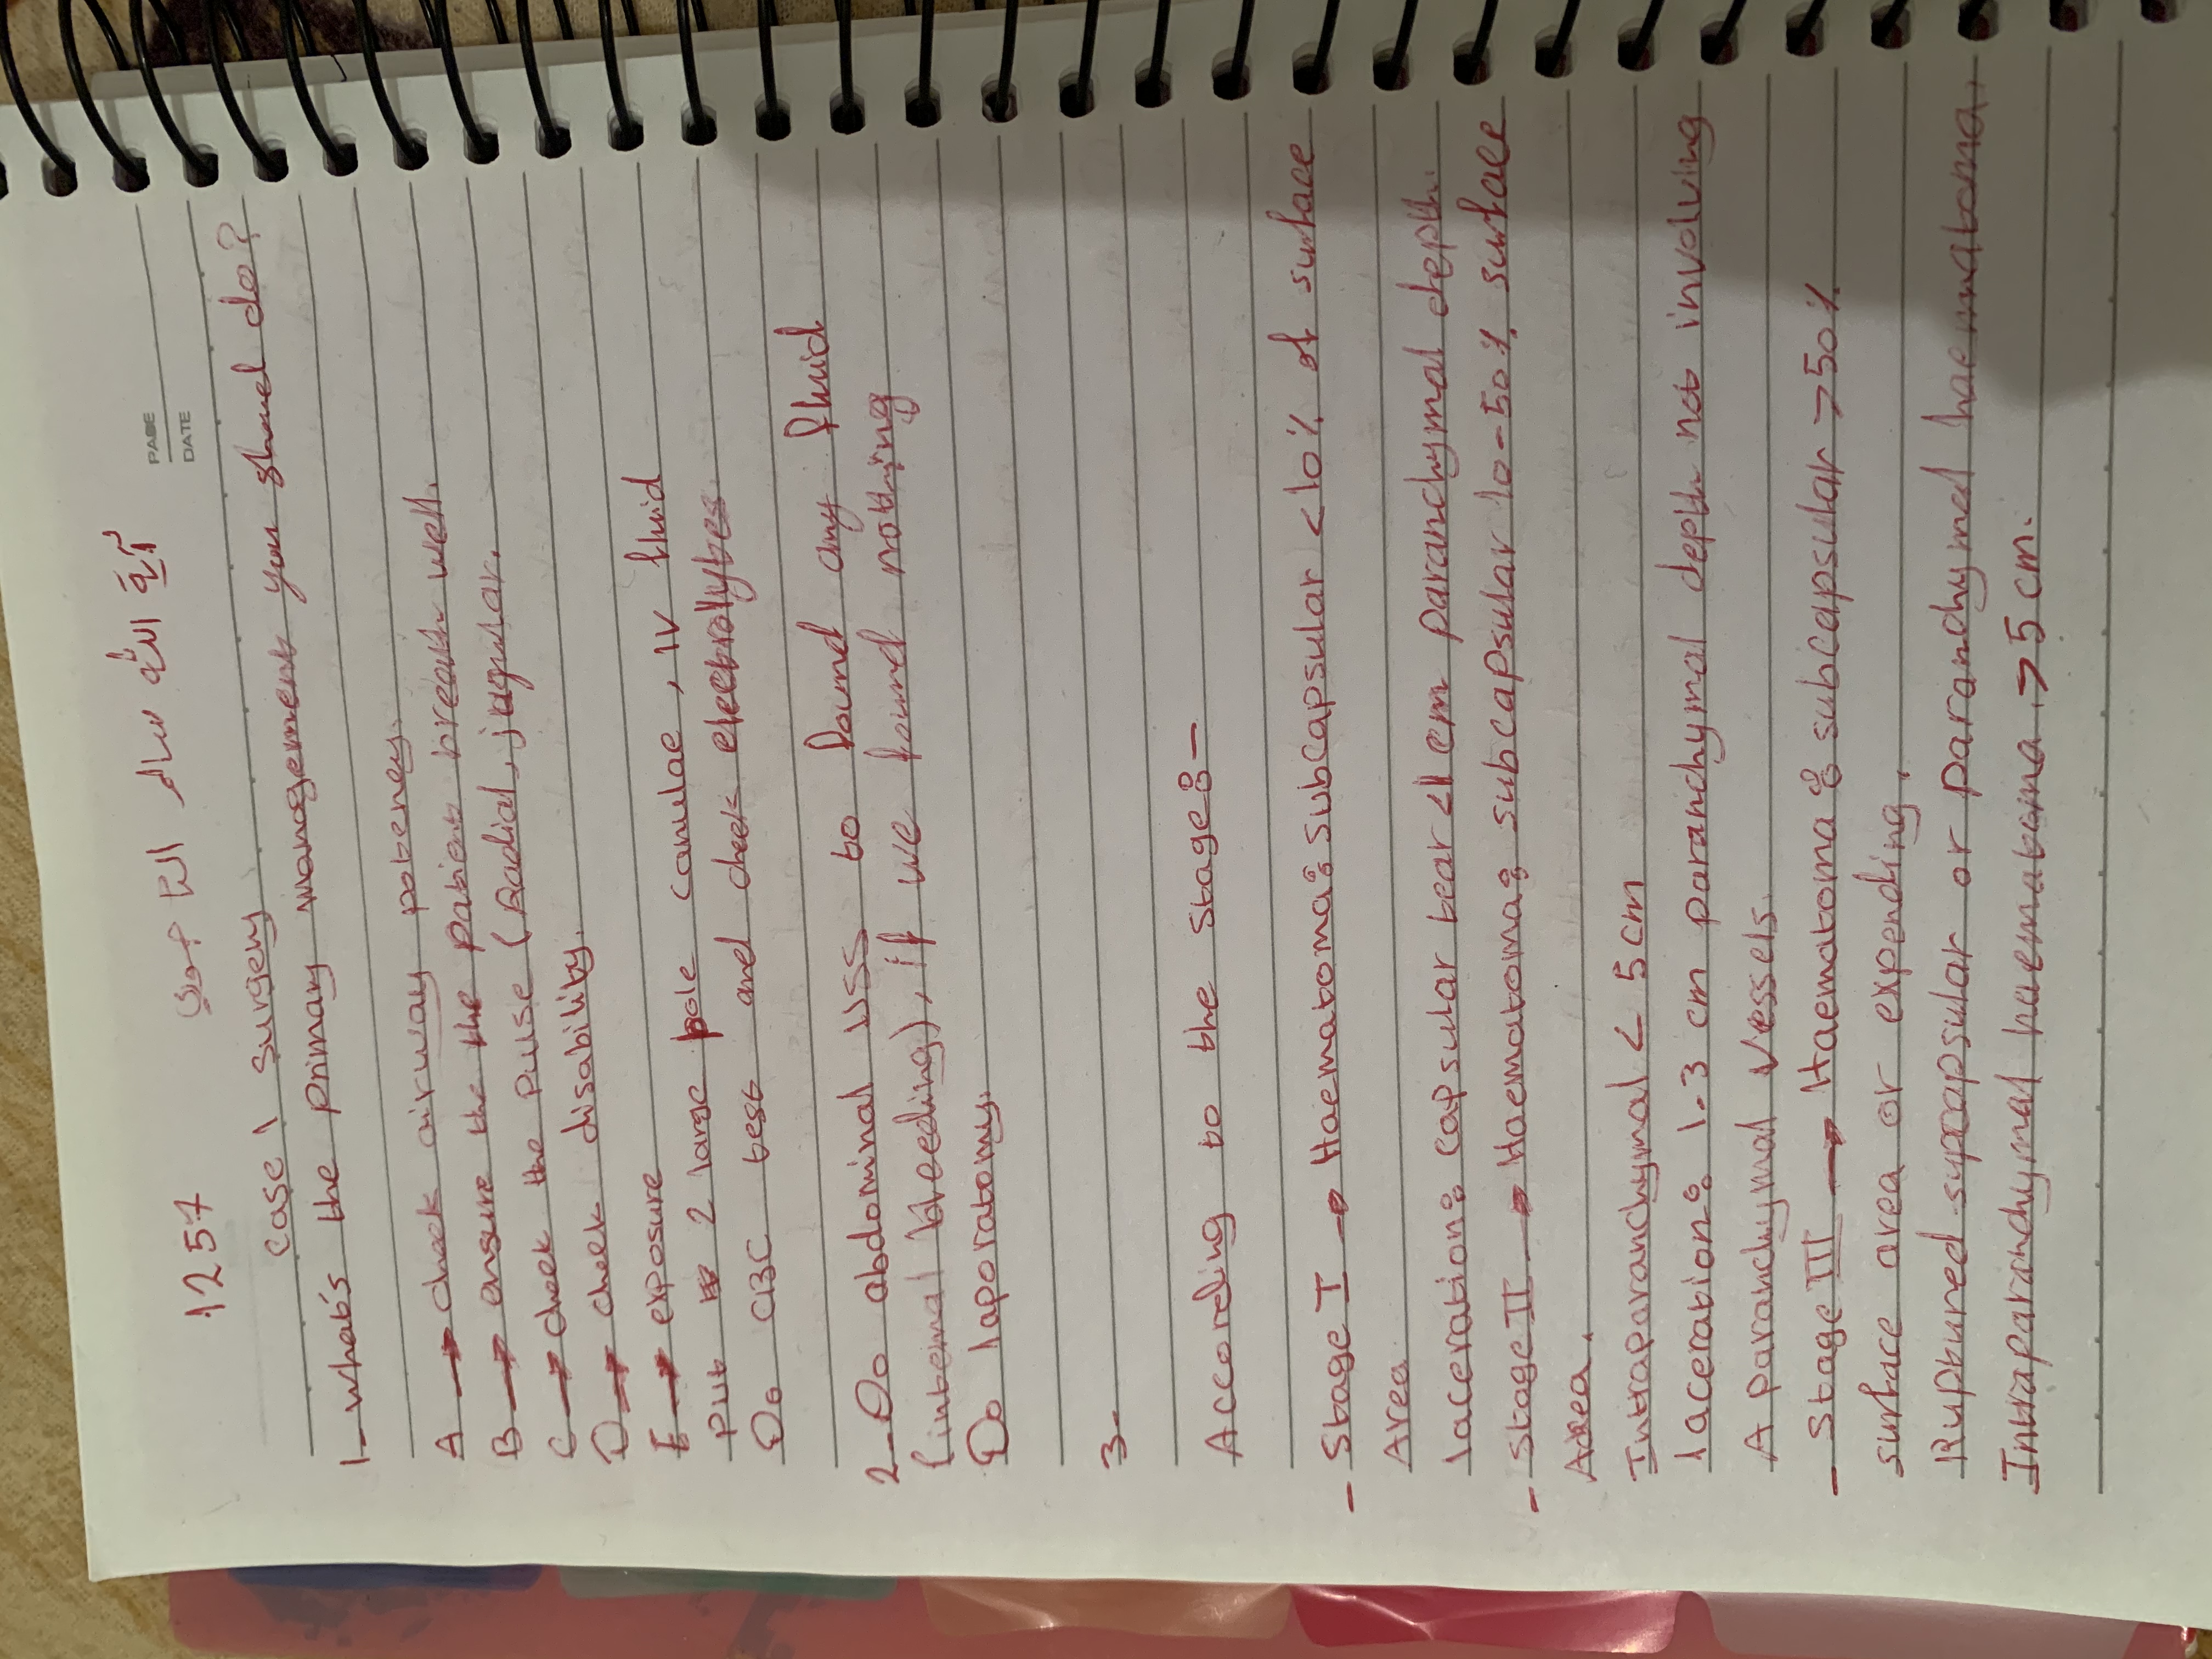 PAGE
DATE
1257
Case 1 surgery
1- what's the primary management you shoud do?
A → check airway potency.
B → ensure the the patient breath well.
C → check the pulse (Radial, jugular.
D → chek disability.
E → exposure
put 2 large pole canulae, IV fluid
Do CBC test and chek electrolytes.
2- Do abdominal USS to found any fluid
(internal bleeding), if we found nothing
Do laporatomy.
3-
According to the stage:-
- Stage I → Haematoma: subcapsular <10% of surface
Area.
laceration: capsular tear <1 cm paranchymal depth.
- Stage II → Haematoma: subcapsular 10-50% surface
Area.
Intraparanchymal < 5 cm
laceration: 1.3 cm paranchymal depth not involving
A paranchymal vessels.
- Stage III → Haematoma: subcapsular >50%
surface area or expending.
Ruptured supcapsular or paranchymed haematoma.
Intraparanchymal haematoma. >5 cm.